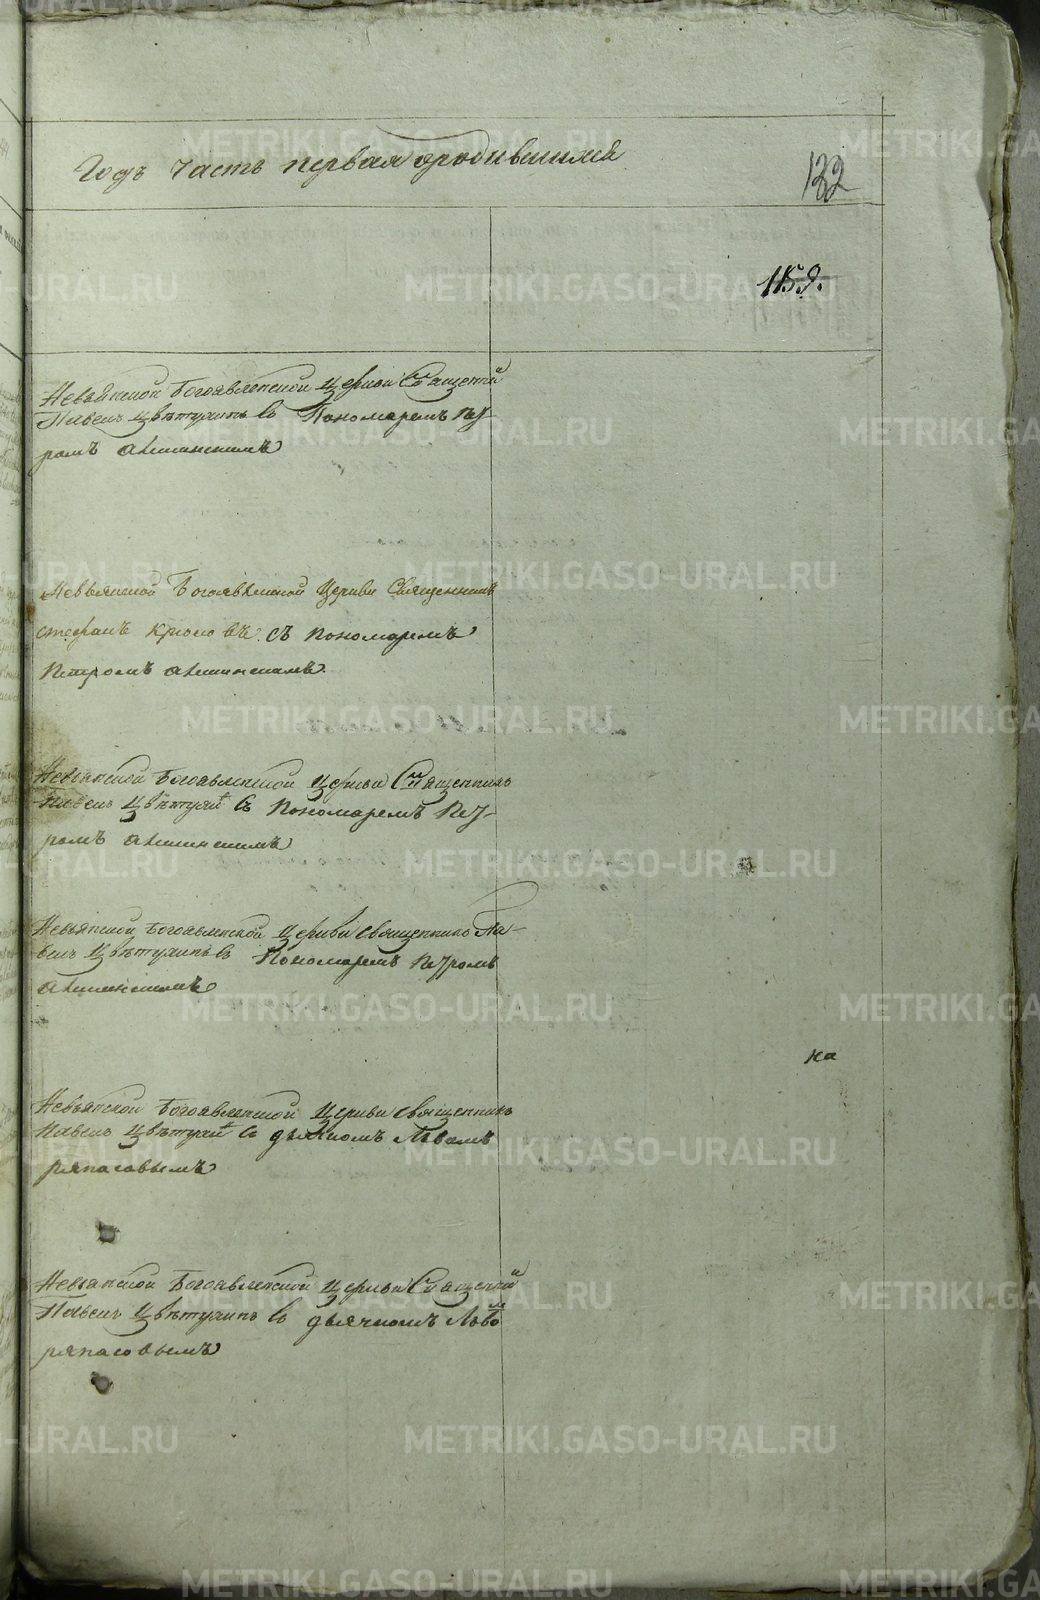 Годъ Часть первая ородившихся
132
159.
Невьянской Богоявленской Церкви Священникъ
Павелъ Цвѣтухинъ со Пономаремъ Пет-
ромъ
Невьянской Богоявленской Церкви Священникъ
стефанъ съ пономаремъ
Петромъ
Невьянской Богоявленской Церкви Священникъ
Павелъ Съ Пономаремъ Пет-
ромъ
Невьянской Богоявленской Церкви священникъ Па-
велъ Пономаремъ Петромъ
на
Невьянской Богоявленской Церкви священникъ
Павелъ Съ дьячкомъ Львомъ
ряпасовымъ
Невьянской Богоявленской Церкви Священникъ
Павелъ Цвѣтухинъ со дьячкомъ Львомъ
ряпасовымъ
METRIKI.GASO-URAL.RU